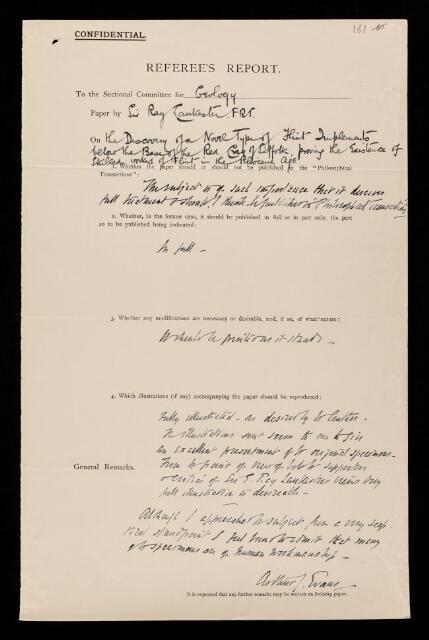 161
CONFIDENTIAL.
REFEREE'S REPORT.
To the Sectional Committee for Geology
Paper by Sir Ray Lankester. F.R.S.
On the Discovery of a Novel Type of Flint Implements
below the Base of the Red Crag of Suffolk, proving the Existence of
Skilled workers of Flint in the Pliocene Age
1. Whether the paper should or should not be published in the "Philosophical
Transactions":
The subject is of such importance that it deserves
full treatment & should I think be published in Philosophical Transactions
2. Whether, in the former case, it should be published in full or in part only, the part
so to be published being indicated:
In full -
3. Whether any modifications are necessary or desirable, and, if so, of what nature:
It should be printed as it stands -
4. Which illustrations (if any) accompanying the paper should be reproduced:
Fully illustrated - as desired by the Author -
The illustrations sent seem to me to give
an excellent presentment of the original specimens -
General Remarks.
From the point of view of both the supporters
& critics of Sir E. Ray Lankester's views very
full illustration is desirable -
Although I approached the subject from a very scep-
tical standpoint I feel bound to admit that many
of the specimens are of human workmanship -
Arthur J. Evans
It is requested that any further remarks may be written on foolscap paper.